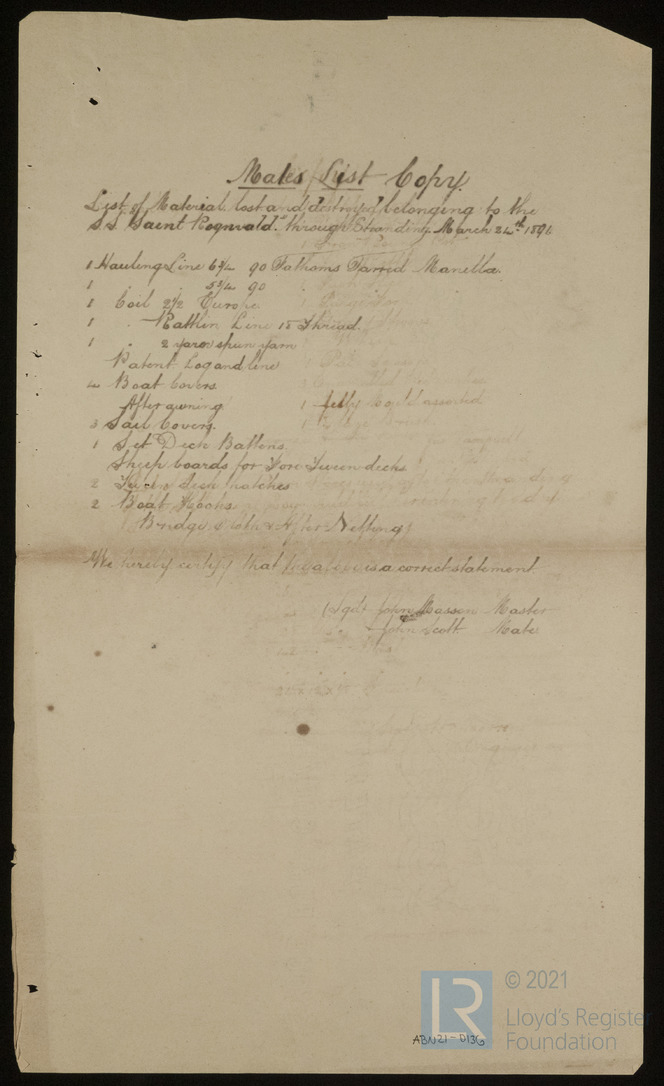 Mates List Copy.
List of Material lost and destroyed belonging to the
S.S. "Saint Rognvald" through Stranding March 24th 1891
1 Hauling Line 6¾ 90 Fathoms Tarred Manella
1 " 5¾ 90 "
1 Coil 2½ Europe
1 " Rattlin Line 15 Thread
1 " 2 yarn spun yarn
Patent Log and line
4 Boat Covers
After awning
3 Sail Covers
1 Set Deck Battens
Sheep boards for Fore Tween decks
2 Tween deck hatches
2 Boat Hooks
Bridge cloth & After Nettings
We hereby certify that the above is a correct statement
(Sgd) John Masson Master
John Scott Mate
ABN21-D136
LR
© 2021
Lloyd's Register
Foundation